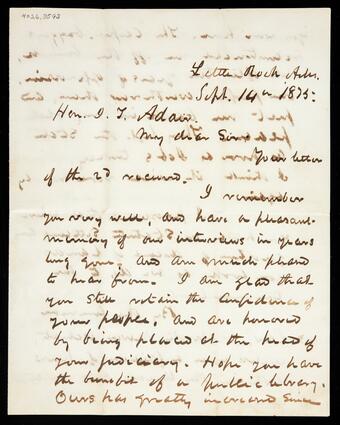 4026.3593
Little Rock, Arks.
Sept. 14th 1875.
Hon. I. T. Adair.
My dear Sir:
Your letter
of the 2d received.
I remember
you very well, and have a pleasant
memory of our interviews in years
long gone; and am much pleased
to hear from. I am glad that
you still retain the confidence of
your people, and are honored
by being placed at the head of
your judiciary. Hope you have
the benefit of a public library.
Ours has greatly increased since